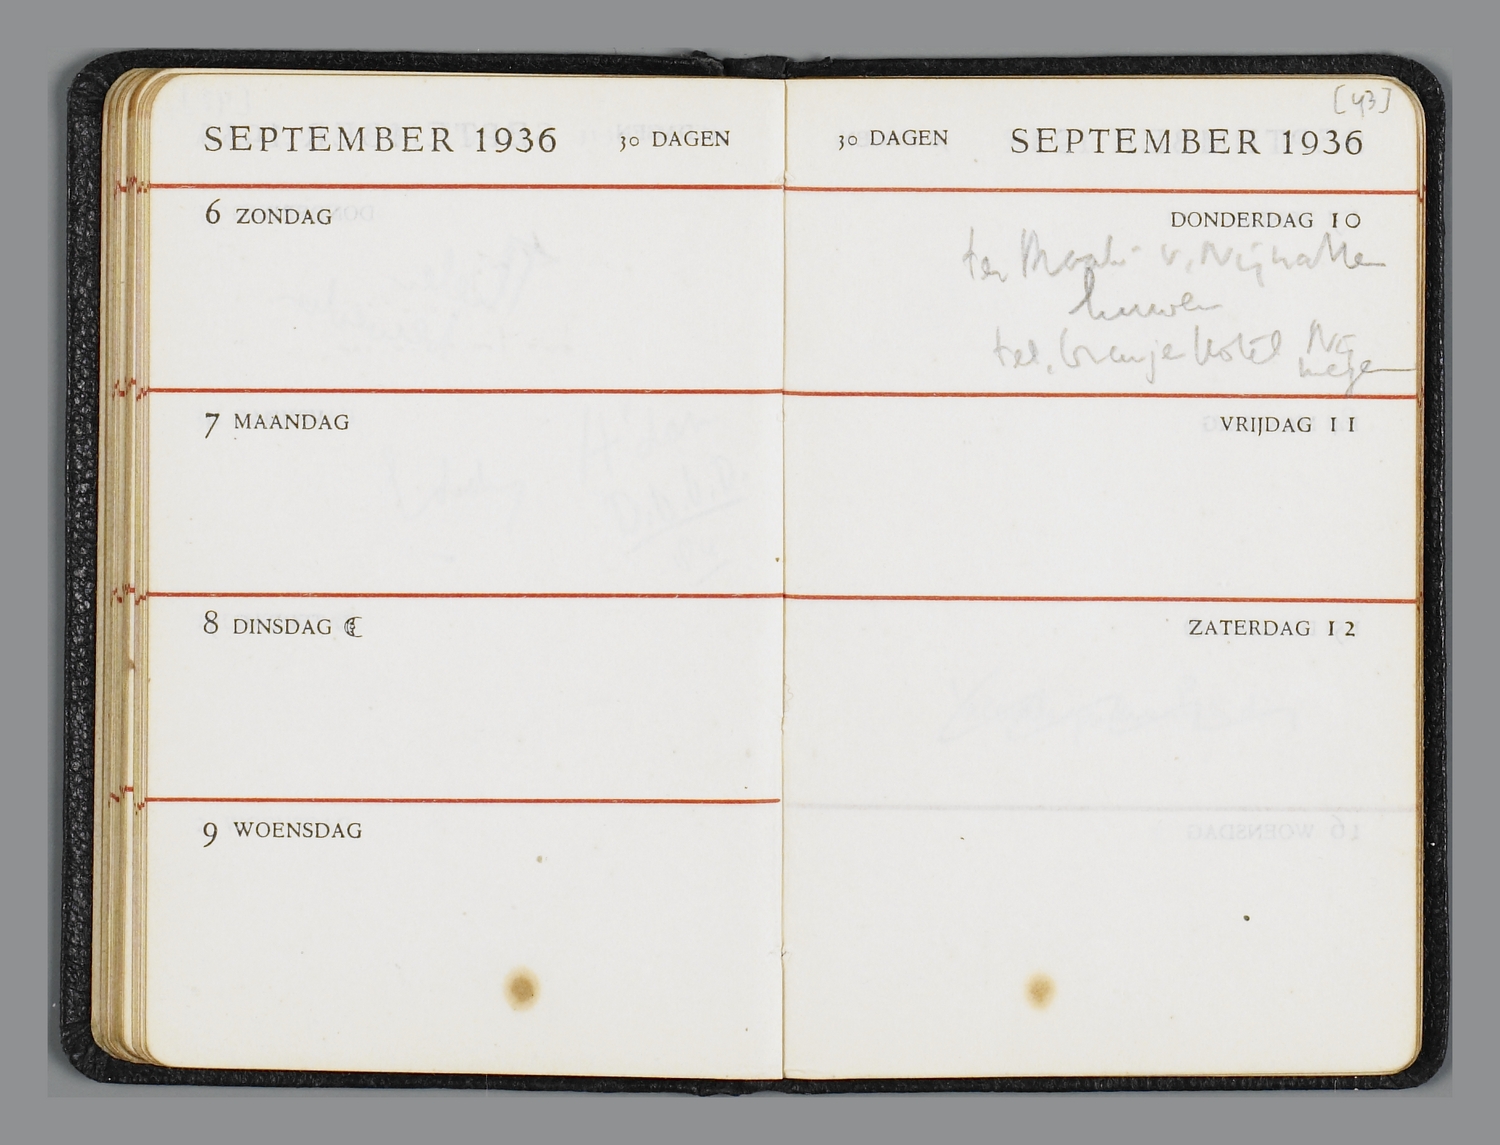 SEPTEMBER 1936 30 DAGEN
6 ZONDAG
7 MAANDAG
8 DINSDAG ☾
9 WOENSDAG
[43]
30 DAGEN SEPTEMBER 1936
DONDERDAG 10
ter v. Nijnatten
huwen
tel. Oranjehotel Nij
megen
VRIJDAG 11
ZATERDAG 12